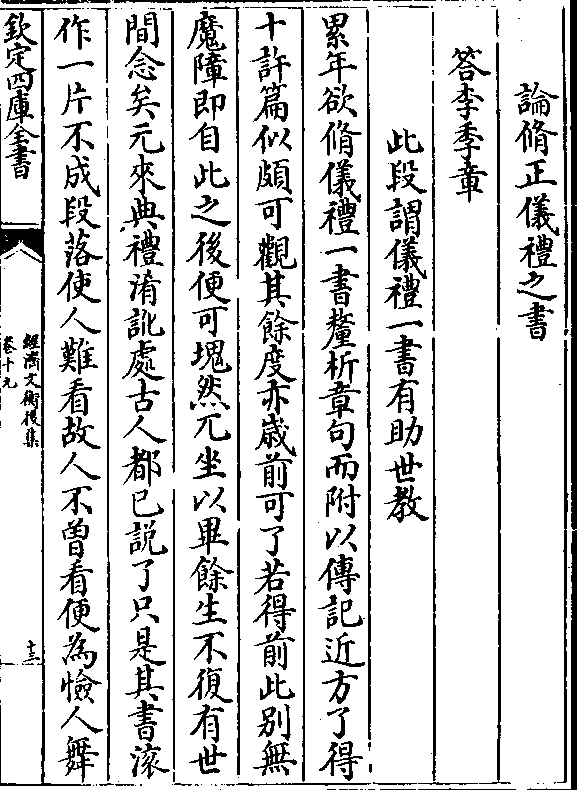 論脩正儀禮之書
答李季章
此段謂儀禮一書有助世教
累年欲脩儀禮一書釐析章句而附以傳記近方了得
十許篇似頗可觀其餘度亦歲前可了若得前此别無
魔障即自此之後便可塊然兀坐以畢餘生不復有世
間念矣元來典禮淆訛處古人都已説了只是其書滚
作一片不成段落使人難看故人不曾看便為憸人舞
欽定四庫全書
經濟文衡後集
卷十九
十三